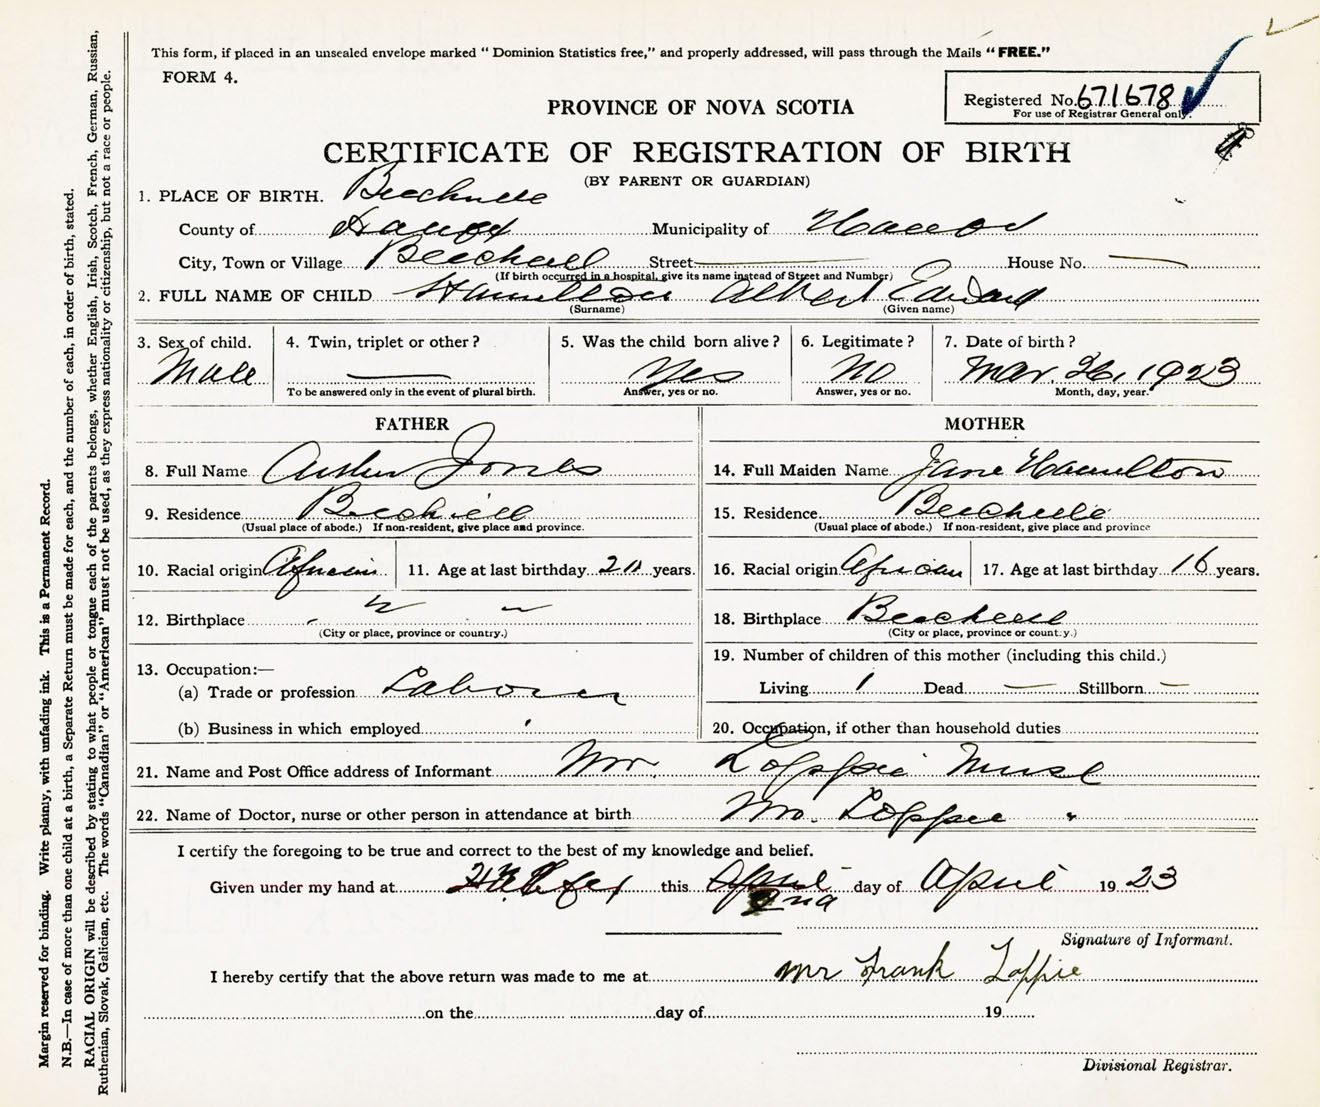 This form, if placed in an unsealed envelope marked “ Dominion Statistics free,” and properly addressed, will pass through the Mails “ FREE.”
FORM 4.
Registered No. 671678
For use of Registrar General only.
PROVINCE OF NOVA SCOTIA
CERTIFICATE OF REGISTRATION OF BIRTH
(BY PARENT OR GUARDIAN)
1. PLACE OF BIRTH.
County of Municipality of
City, Town or Village Street House No.
(If birth occurred in a hospital, give its name instead of Street and Number)
2. FULL NAME OF CHILD Hamilton Albert Edward
(Surname) (Given name)
3. Sex of child. Male
4. Twin, triplet or other ?
To be answered only in the event of plural birth.
5. Was the child born alive ? Yes
Answer, yes or no.
6. Legitimate ? No
Answer, yes or no.
7. Date of birth ? Mar. 26, 1923
Month, day, year.
FATHER
8. Full Name Jones
9. Residence
(Usual place of abode.) If non-resident, give place and province.
10. Racial origin African 11. Age at last birthday years.
12. Birthplace
(City or place, province or country.)
13. Occupation:—
(a) Trade or profession Laborer
(b) Business in which employed
MOTHER
14. Full Maiden Name Jane Hamilton
15. Residence
(Usual place of abode.) If non-resident, give place and province
16. Racial origin African 17. Age at last birthday 16 years.
18. Birthplace
(City or place, province or country.)
19. Number of children of this mother (including this child.)
Living 1 Dead — Stillborn —
20. Occupation, if other than household duties
21. Name and Post Office address of Informant Mr. Loppie
22. Name of Doctor, nurse or other person in attendance at birth Loppie "
I certify the foregoing to be true and correct to the best of my knowledge and belief.
Given under my hand at Halifax this April day of April 19 23
2nd
Signature of Informant.
I hereby certify that the above return was made to me at Mr Frank Loppie
on the day of 19
Divisional Registrar.
Margin reserved for binding. Write plainly, with unfading ink. This is a Permanent Record.
N.B.—In case of more than one child at a birth, a Separate Return must be made for each, and the number of each, in order of birth, stated.
RACIAL ORIGIN will be described by stating to what people or tongue each of the parents belongs, whether English, Irish, Scotch, French, German, Russian,
Ruthenian, Slovak, Galician, etc. The words “Canadian” or “American” must not be used, as they express nationality or citizenship, but not a race or people.